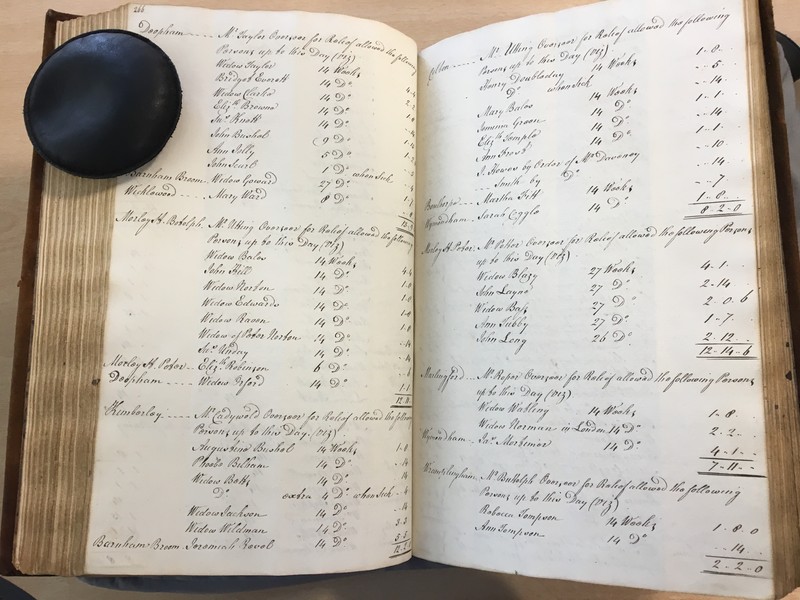 266
Deopham - - - - Mr. Taylor Overseer for Relief allowed the following
Persons up to this Day (Viz)
Widow Taylor 14 Weeks 4-4
Bridget Everett 14 Do
Widow Clarke 14 Do
Eliz. Browne 14 Do
Jas. Knott 14 Do
John Bushel 9 Do
Ann Jolly 5 Do
John 1 Do when sick
Barnham Broom Widow Goward 27 Do
Wicklewood - - - Mary Ward 8 Do
Morley St. Botolph Mr. Utting Overseer for Relief allowed the following
Persons up to this Day (Viz)
Widow Bales 14 Weeks 4-4
John Hill 14 Do
Widow Norton 14 Do
Widow Edwards 14 Do
Widow Raven 14 Do
Widow of Peter Norton 14 Do
14 Do
Morley St. Peter - - Eliz. Robinson 6 Do
Deopham - - - - Widow 14 Do
Kimberley - - - - Mr. Ladywold Overseer for Relief allowed the following
Persons up to this Day (Viz)
Augustine Bushel 14 Weeks 1-0
Phoebe Bilham 14 Do
Widow Betts 14 Do
Do extra 4 Do when sick
Widow Jackson 14 Do
Widow Wildman 14 Do
Barnham-Broom Jeremiah Revel 14 Do
Mr. Utting Overseer for Relief allowed the following
Persons up to this Day (Viz)
Henry Doubleday 14 Weeks 1-0
Do when Sick - - 5
Mary Bales 14 Weeks - 14
Green 14 Do 1-1
Eliz. Temple 14 Do - 14
Ann Frost 14 Do 1-1
J. Howes by Order of Mr. Daveney - 10
Smith by Do - 14
Martha Fitt 14 Weeks - 7
Wymondham - Sarah 14 Do 1-8
8-2-0
Morley St. Peter Mr. Overseer for Relief allowed the following Persons
up to this Day (Viz)
Widow Blazy 27 Weeks 4-1
John Layne 27 Do 2-14
Widow Bass 27 Do 2-0-6
Ann Tubby 27 Do 1-7
John Long 26 Do 2-12
12-14-6
Marlingford - - Mr. Roper Overseer for Relief allowed the following Persons
up to this Day (Viz)
Widow 14 Weeks 1-8
Widow Norman in London 14 Do 2-2
Wymondham Jas. Mortimer 14 Do 4-1
7-11
Wramplingham Mr. Overseer for Relief allowed the following
Persons up to this Day (Viz)
Rebecca Tompson 14 Weeks 1-8-0
Ann Tompson 14 Do - 14
2-2-0